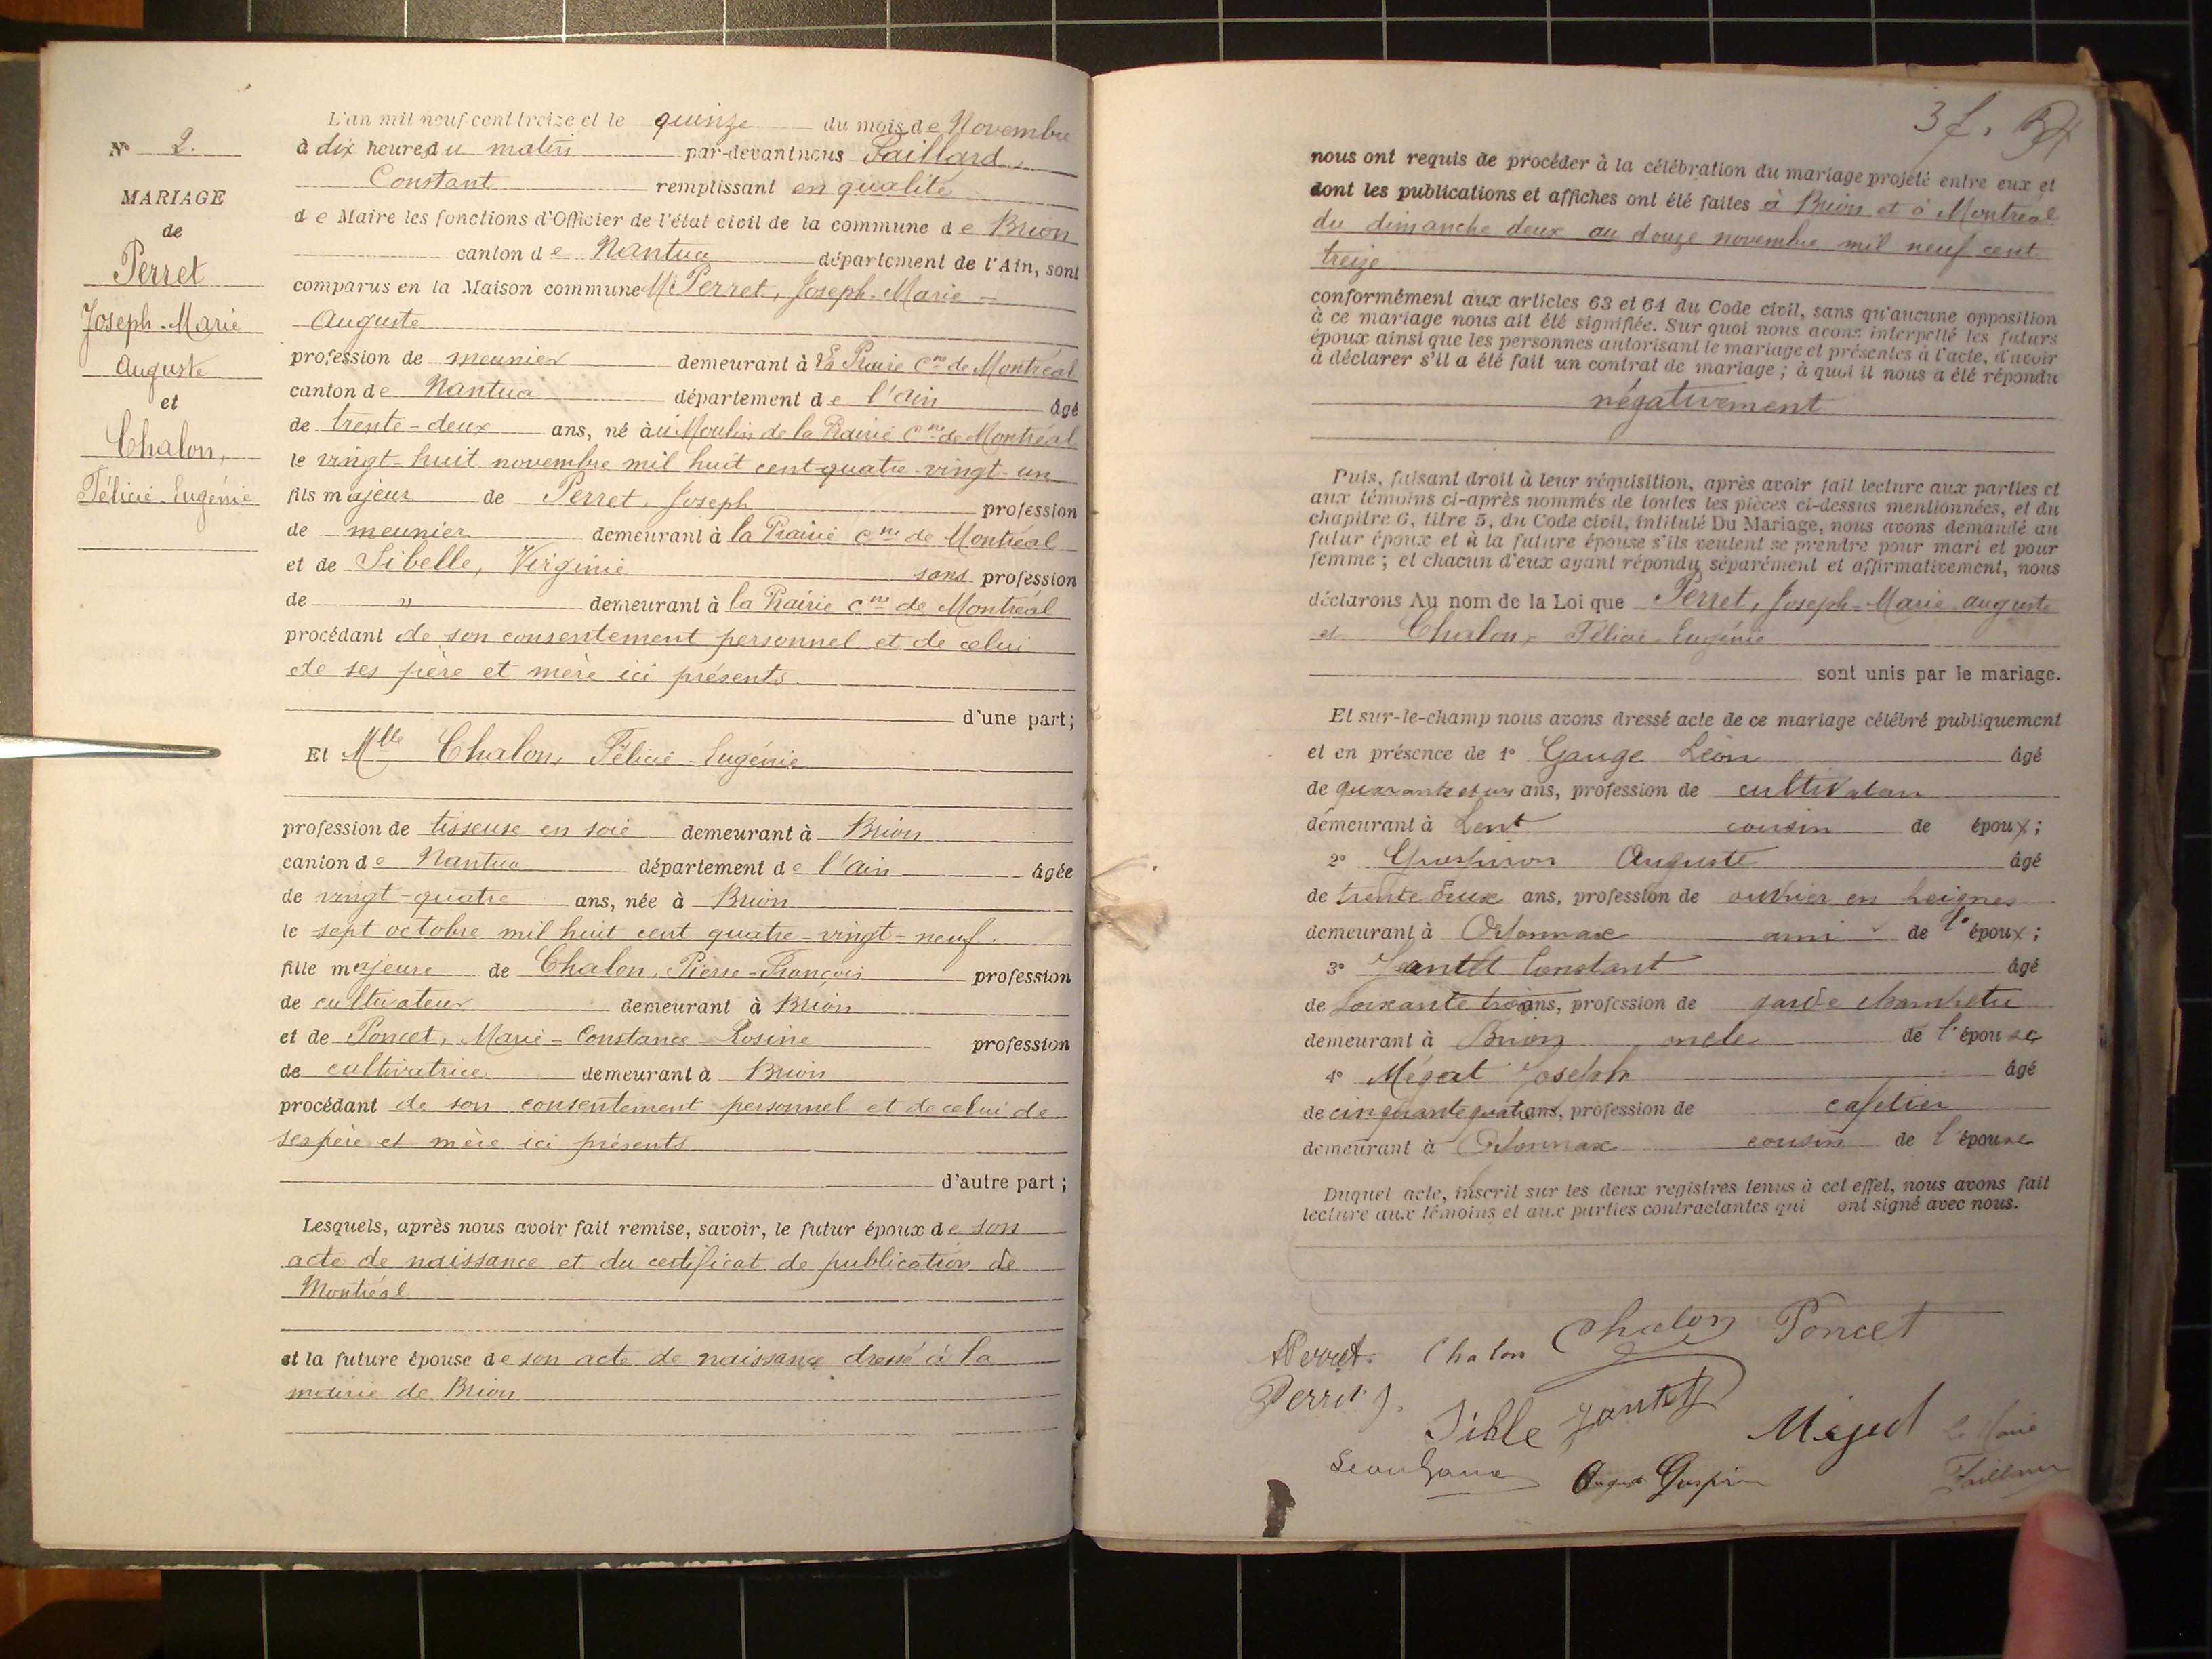 N° 2.
MARIAGE
de
Perret
Joseph-Marie
Auguste
et
Chalon,
Félicie-Eugénie
L'an mil neuf cent treize et le quinze du mois de Novembre
à dix heures du matin par-devant nous
Constant remplissant en qualité
de Maire les fonctions d'Officier de l'état civil de la commune de Brion
canton de Nantua département de l'Ain, sont
comparus en la Maison commune Mr Perret, Joseph-Marie-
Auguste
profession de meunier demeurant à la Prairie cne de Montréal
canton de Nantua département de l'Ain âgé
de trente-deux ans, né au Moulin de la Prairie cne de Montréal
le vingt-huit novembre mil huit cent quatre-vingt-un
fils majeur de Perret, Joseph profession
de meunier demeurant à la Prairie cne de Montréal
et de Sibelle, Virginie sans profession
de " demeurant à la Prairie cne de Montréal
procédant de son consentement personnel et de celui
de ses père et mère ici présents
d'une part;
Et Mlle Chalon, Félicie-Eugénie
profession de tisseuse en soie demeurant à Brion
canton de Nantua département de l'Ain âgée
de vingt-quatre ans, née à Brion
le sept octobre mil huit cent quatre-vingt-neuf.
fille majeure de Chalon, Pierre-François profession
de cultivateur demeurant à Brion
et de Poncet, Marie-Constance-Rosine profession
de cultivatrice demeurant à Brion
procédant de son consentement personnel et de celui de
ses père et mère ici présents
d'autre part;
Lesquels, après nous avoir fait remise, savoir, le futur époux de son
acte de naissance et du certificat de publication de
Montréal
et la future épouse de son acte de naissance dressé à la
mairie de Brion
3 f.
nous ont requis de procéder à la célébration du mariage projeté entre eux et
dont les publications et affiches ont été faites à Brion et à Montréal
du dimanche deux au douze novembre mil neuf cent
treize
conformément aux articles 63 et 64 du Code civil, sans qu'aucune opposition
à ce mariage nous ait été signifiée. Sur quoi nous avons interpellé les futurs
époux ainsi que les personnes autorisant le mariage et présentes à l'acte, d'avoir
à déclarer s'il a été fait un contrat de mariage; à quoi il nous a été répondu
négativement
Puis, faisant droit à leur réquisition, après avoir fait lecture aux parties et
aux témoins ci-après nommés de toutes les pièces ci-dessus mentionnées, et du
chapitre 6, titre 5, du Code civil, intitulé Du Mariage, nous avons demandé au
futur époux et à la future épouse s'ils veulent se prendre pour mari et pour
femme; et chacun d'eux ayant répondu séparément et affirmativement, nous
déclarons Au nom de la Loi que Perret, Joseph-Marie Auguste
et Chalon, Félicie-Eugénie
sont unis par le mariage.
Et sur-le-champ nous avons dressé acte de ce mariage célébré publiquement
et en présence de 1° Gauge Léon âgé
de quarante et un ans, profession de
demeurant à Lent cousin de époux;
2° Auguste âgé
de trente deux ans, profession de ouvrier en peignes
demeurant à Oyonnax ami de l'époux;
3° Jantet Constant âgé
de soixante trois ans, profession de garde champêtre
demeurant à Brion oncle de l'épouse
4° Mégat Joseph âgé
de cinquante quatre ans, profession de cafetier
demeurant à Oyonnax cousin de l'épouse
Duquel acte, inscrit sur les deux registres tenus à cet effet, nous avons fait
lecture aux témoins et aux parties contractantes qui ont signé avec nous.
APerret Chalon Chalon Poncet
Perret J.
Jantet
Le Maire